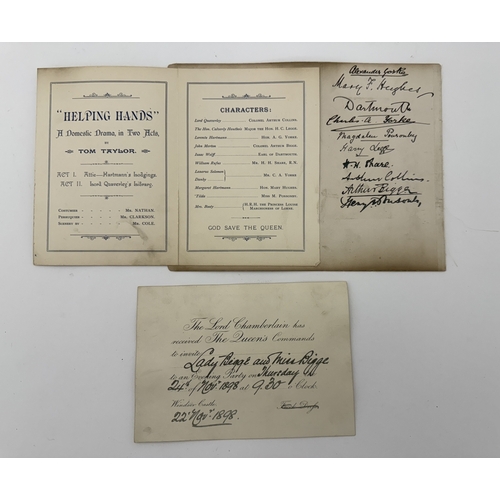 "HELPING HANDS"
A Domestic Drama, in Two Acts,
BY
TOM TAYLOR.
ACT I. Attic—Hartmann's lodgings.
ACT II. Lord Quaverley's library.
COSTUMIER - MR. NATHAN.
PERRUQUIER - MR. CLARKSON.
SCENERY BY - MR. COLE.
CHARACTERS:
Lord Quaverley COLONEL ARTHUR COLLINS.
The Hon. Calverly Hautbois MAJOR THE HON. H. C. LEGGE.
Lorentz Hartmann HON. A. G. YORKE.
John Merton COLONEL ARTHUR BIGGE.
Isaac Wolff EARL OF DARTMOUTH.
William Rufus MR. H. H. SHARE, R.N.
Lazarus Solomon
Hundy MR. C. A. YORKE.
Margaret Hartmann HON. MARY HUGHES.
Tilda MISS M. PONSONBY.
Mrs. Booty H.R.H. THE PRINCESS LOUISE
MARCHIONESS OF LORNE.
GOD SAVE THE QUEEN.
Alexander Yorke
Mary F. Hughes
Dartmouth
Charles A Yorke
Magdalen Ponsonby
Harry Legge
H.H. Share.
Arthur Collins
Arthur Bigge
Henry Ponsonby
The Lord Chamberlain has
received The Queen's Commands
to invite Lady Bigge and Miss Bigge
to an Evening Party on Thursday
24th of Novr 1898 at 9.30 o'Clock.
Windsor Castle.
22d Novr 1898.